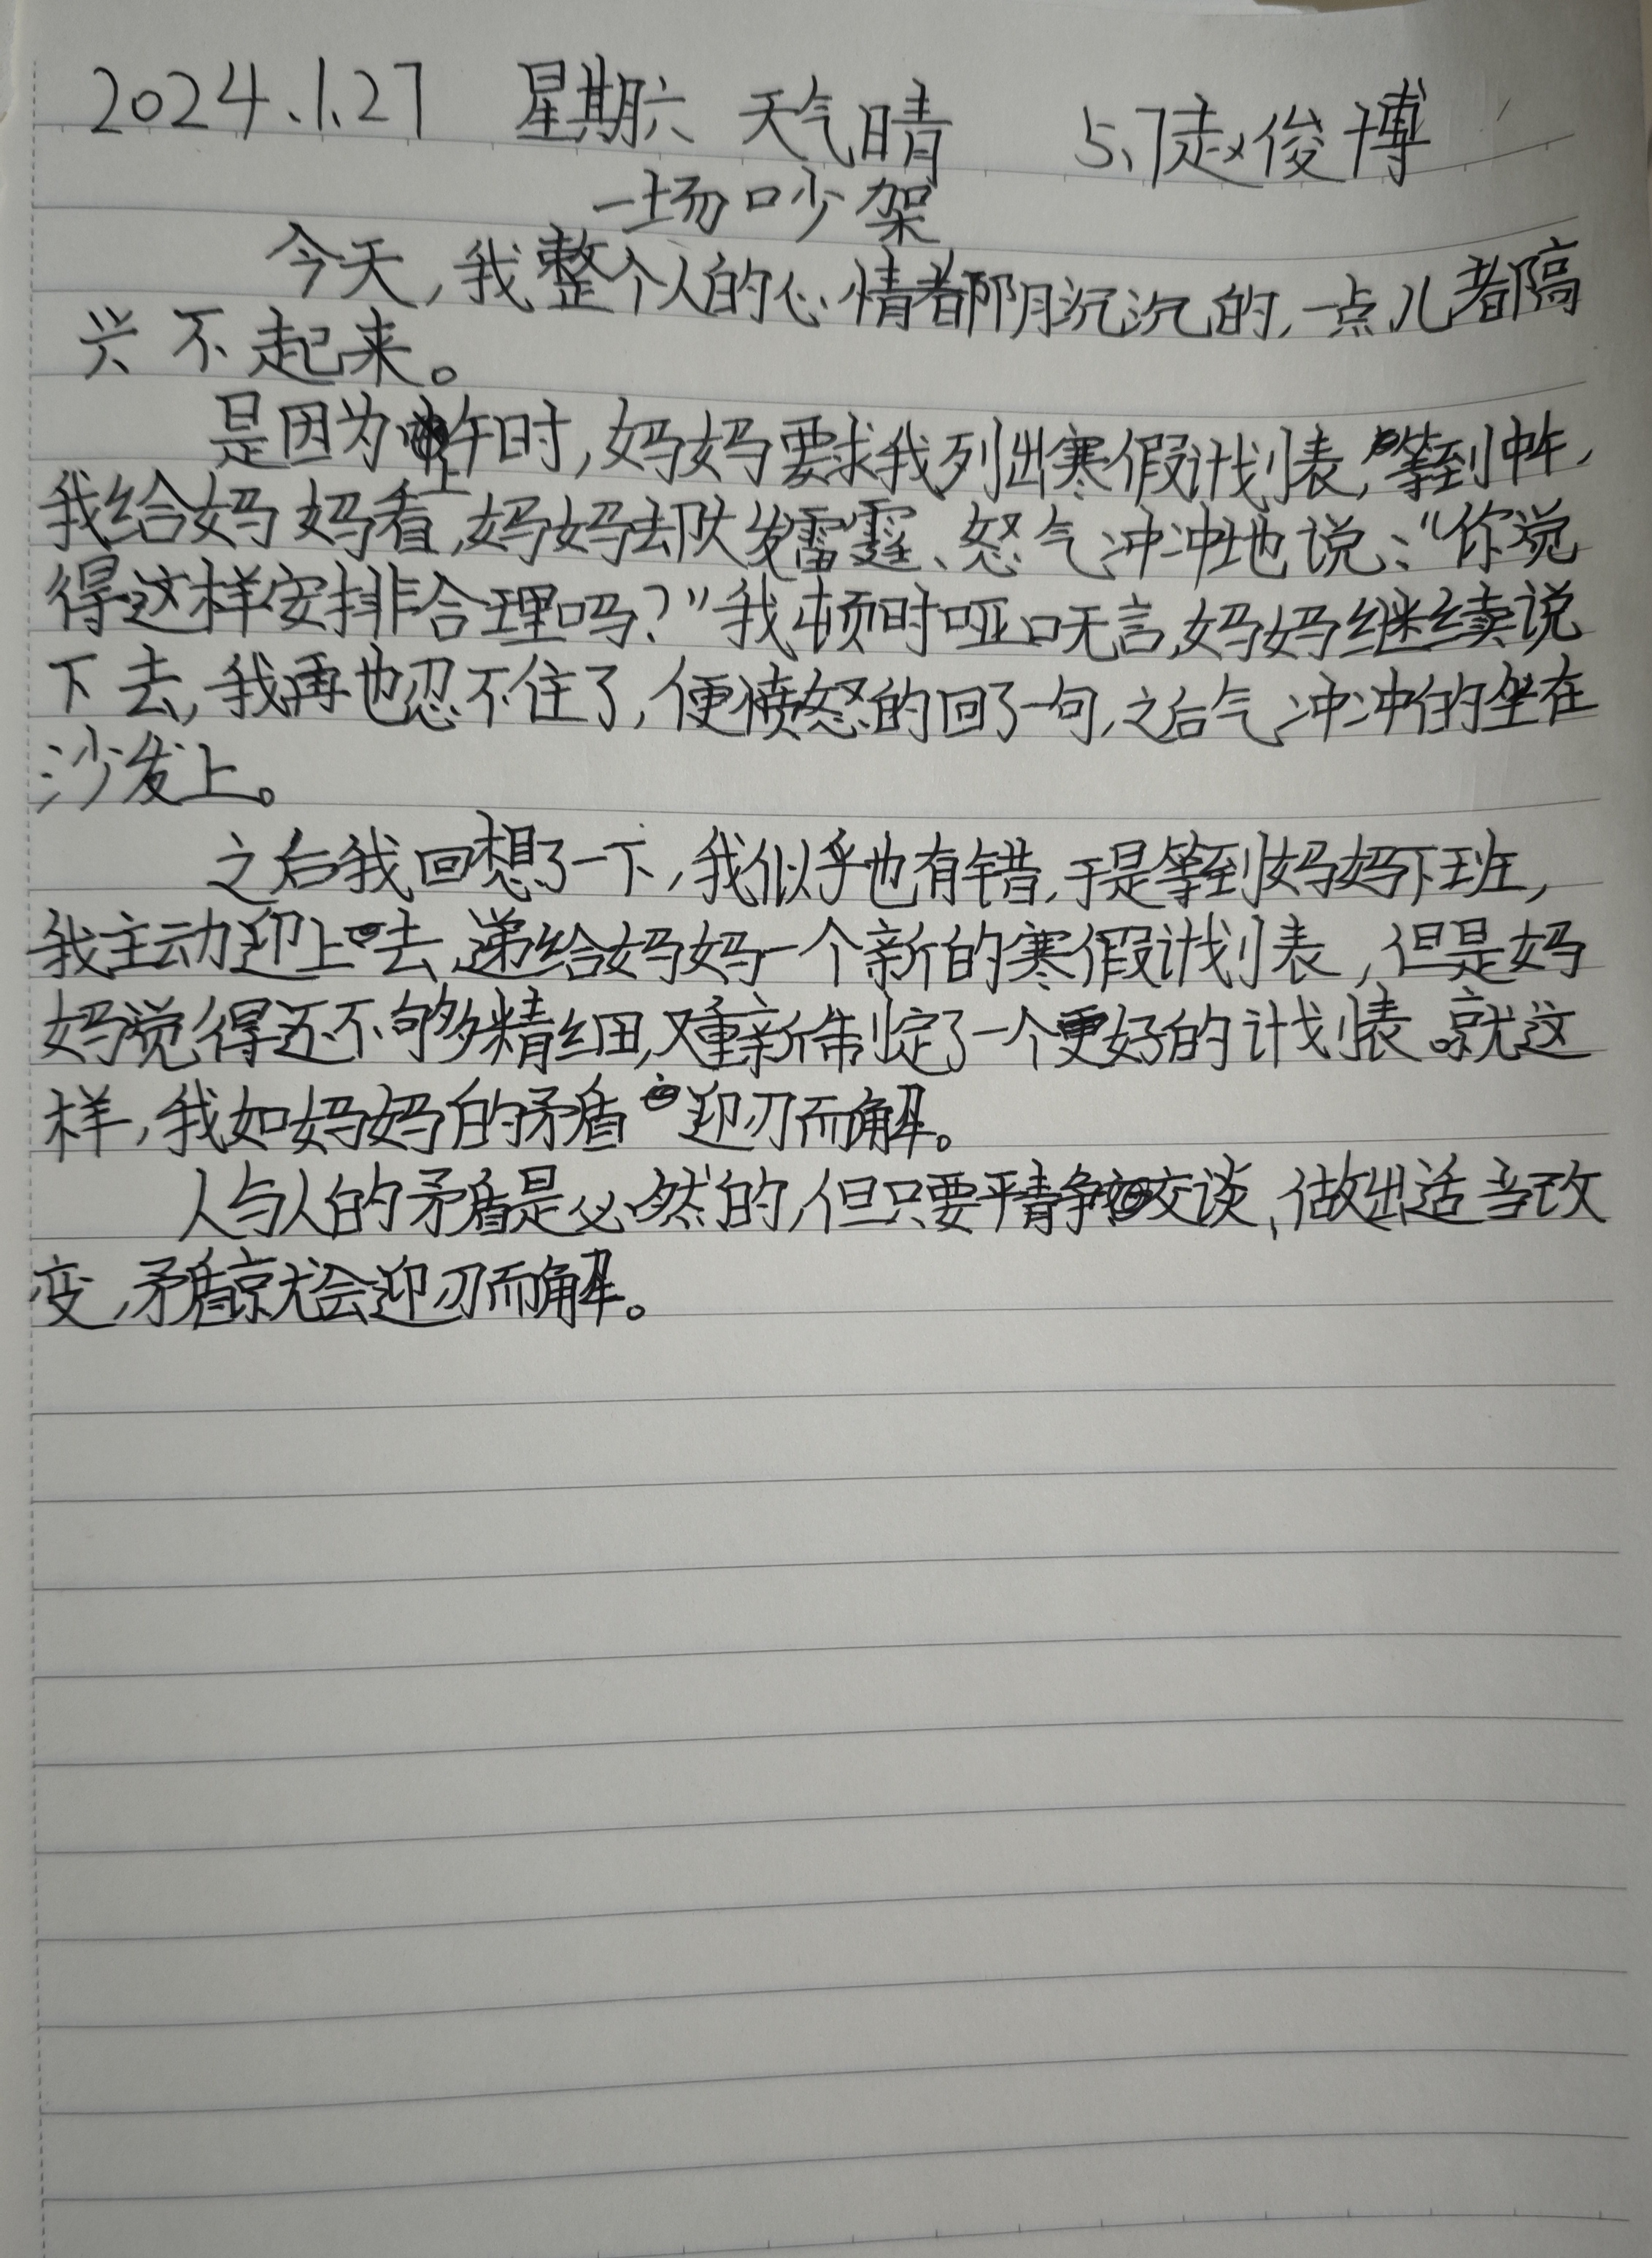 2024.1.27 星期六 天气晴 5.7赵俊博
一场吵架
今天,我整个人的心情都阴沉沉的,一点儿都高
兴不起来。
是因为上午时,妈妈要求我列出寒假计划表,等到中午,
我给妈妈看,妈妈去大发雷霆、怒气冲冲地说:“你觉
得这样安排合理吗?”我顿时哑口无言,妈妈继续说
下去,我再也忍不住了,便愤怒的回了一句,之后气冲冲的坐在
沙发上。
之后我回想了一下,我似乎也有错,于是等到妈妈下班,
我主动迎上去,递给妈妈一个新的寒假计划表,但是妈
妈觉得还不够精细,又重新制定了一个更好的计划表。就这
样,我如妈妈的矛盾迎刃而解。
人与人的矛盾是必然的,但只要平静交谈,做出适当改
变,矛盾就会迎刃而解。